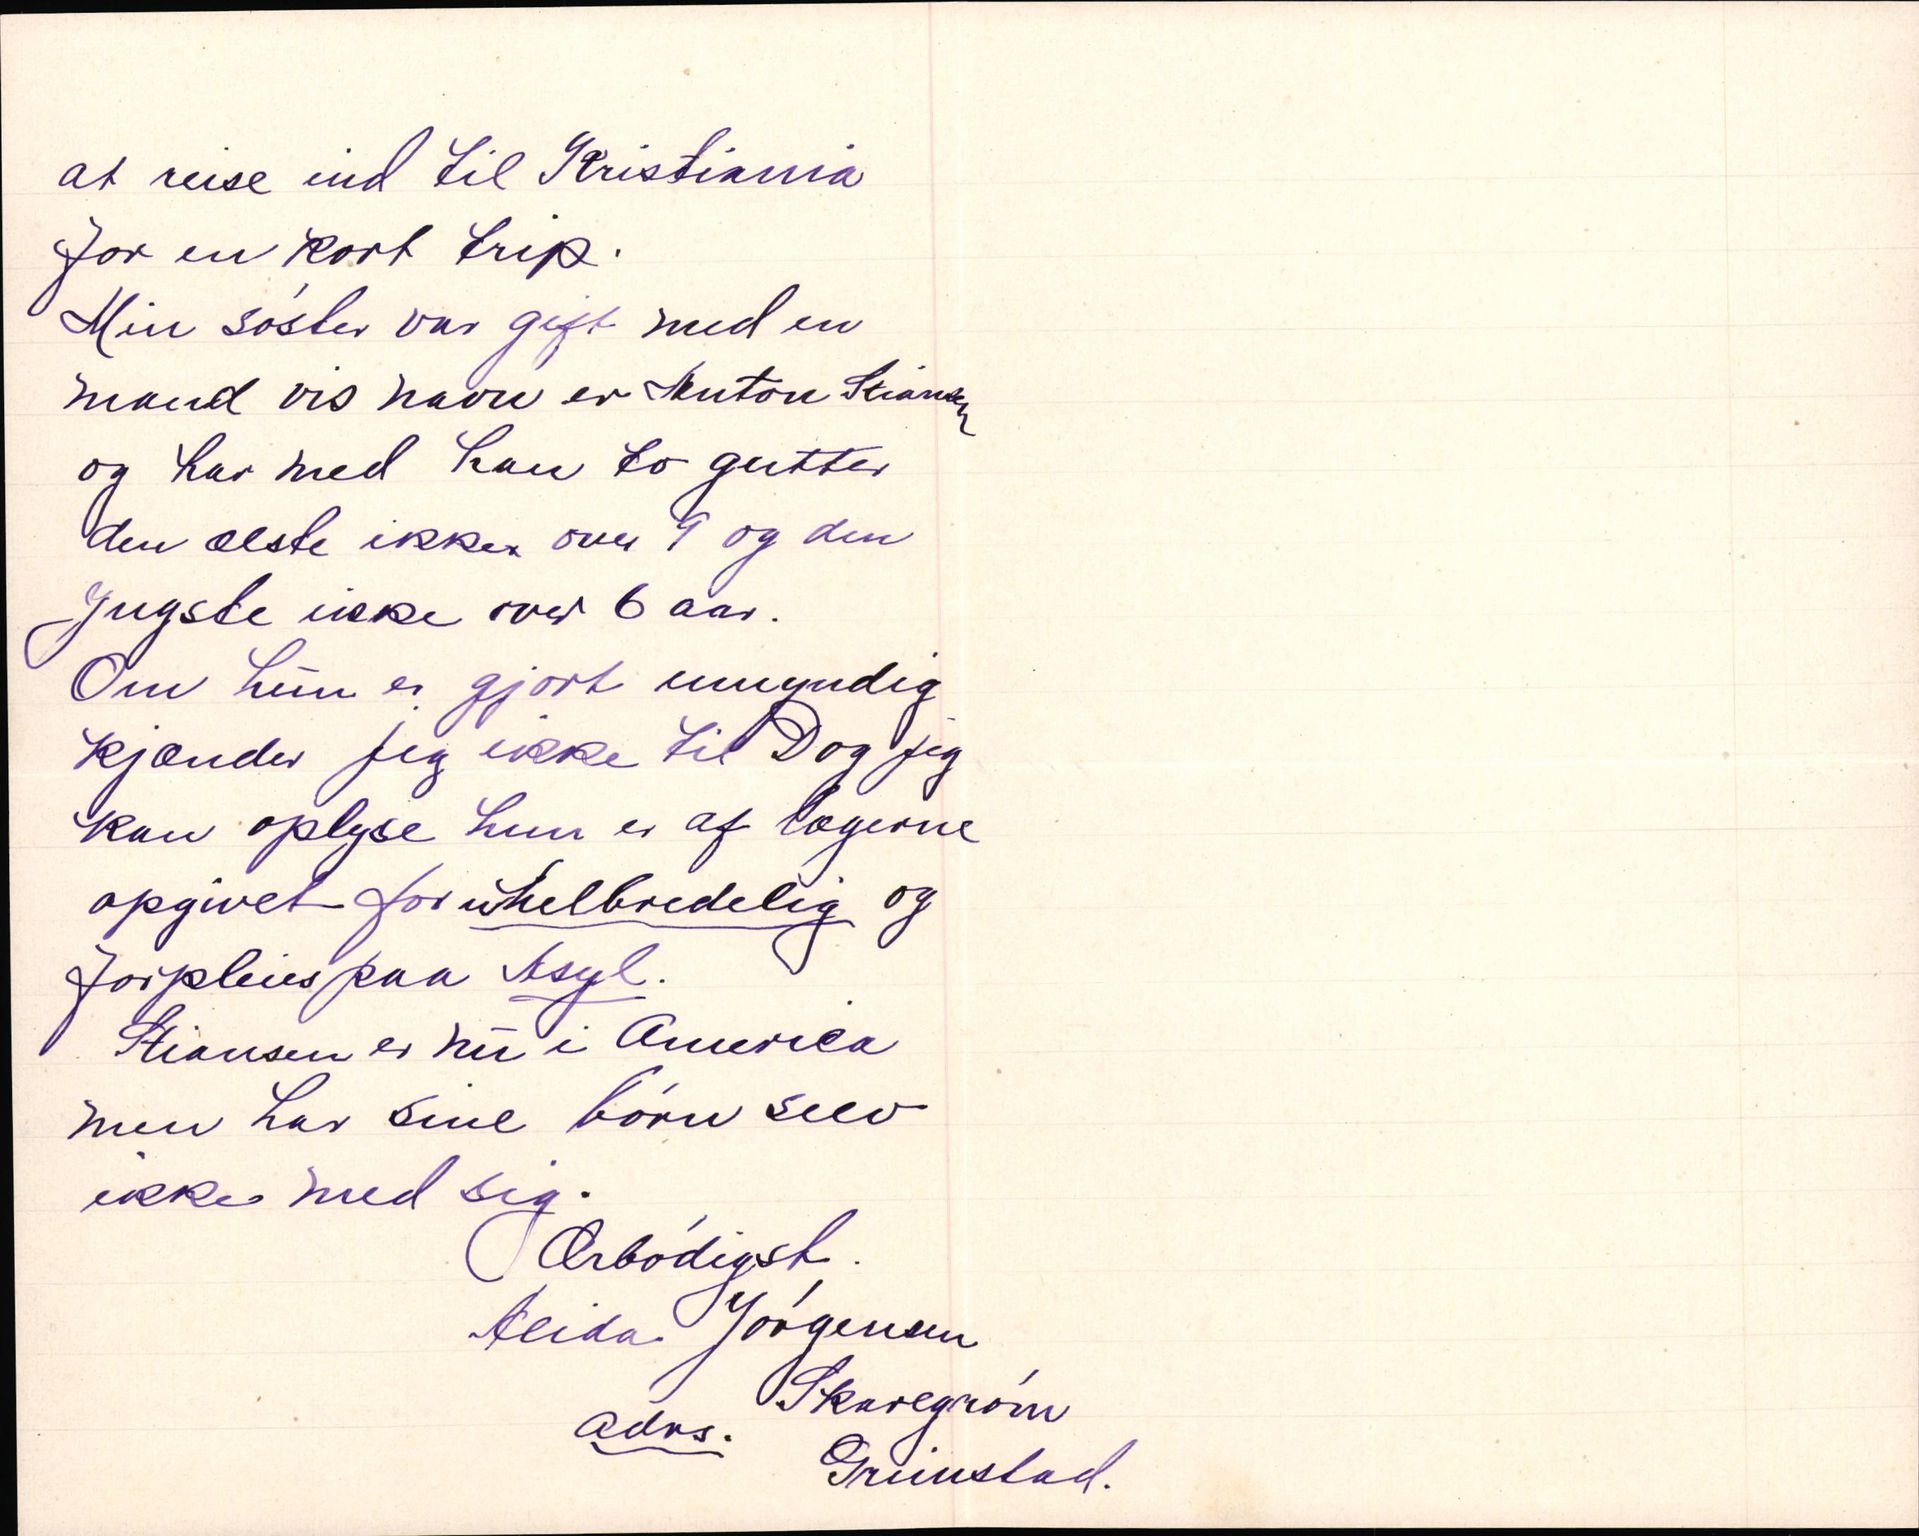 at reise ind til Kristiania
for en kort trip.
Min søster var gift med en
mand vis navn er Anton Stiansen
og har med han to gutter
den ælste ikke over 9 og den
Yngste ikke over 6 aar.
Om hun er gjort umyndig
kjænder jeg ikke til Dog jeg
kan oplyse hun er af lægerne
opgivet for uhelbredelig og
forpleies paa Asyl.
Stiansen er nu i America
men har sine børn selv
ikke med sig.
Ærbødigst.
Alida Jørgensen
Skaregrøm
adrs.
Grimstad.